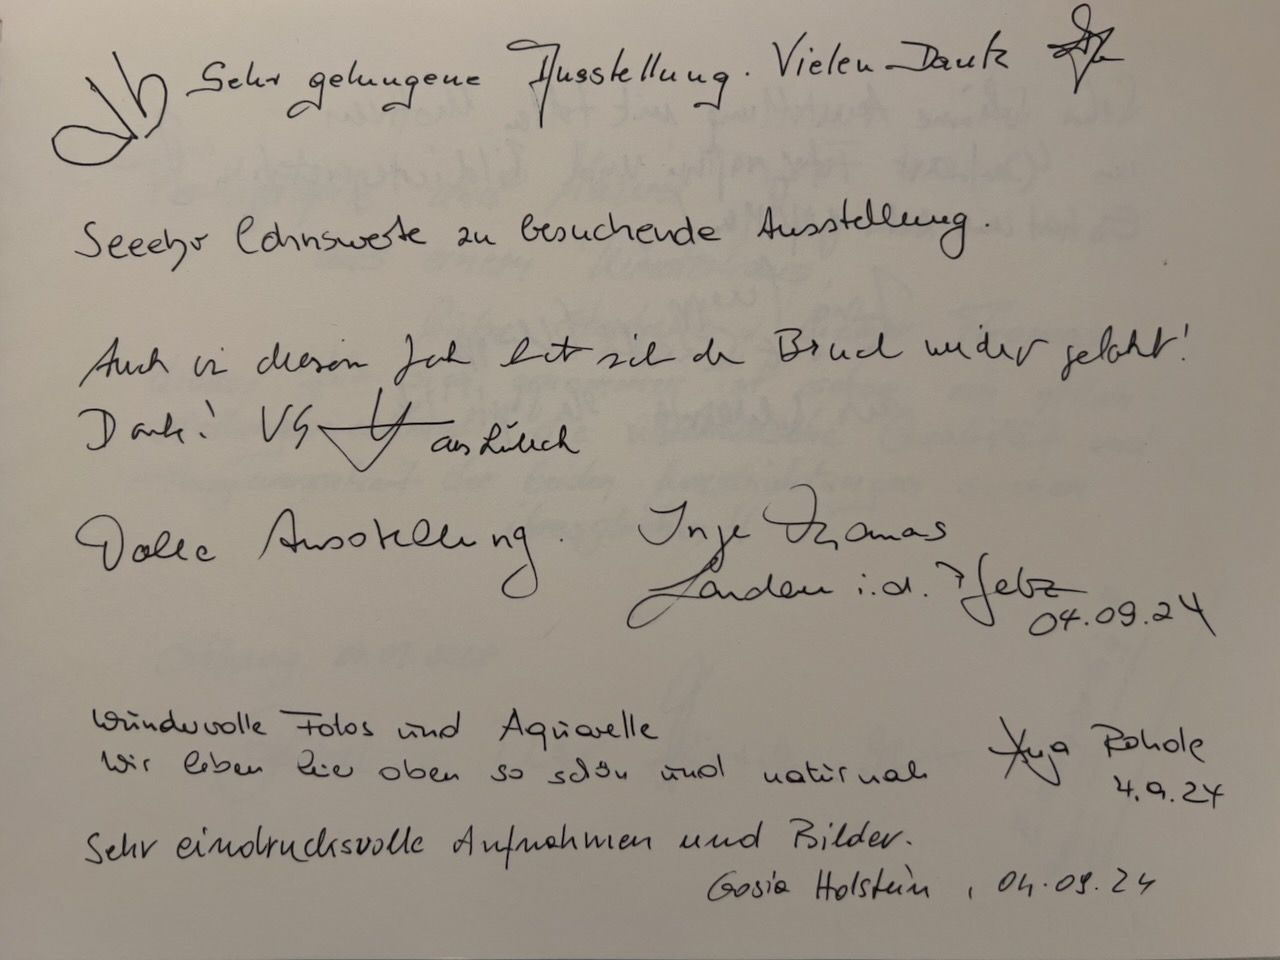 Sehr gelungene Ausstellung. Vielen Dank
Seeehr lohnswerte zu besuchende Ausstellung.
Auch in diesem Jahr hat sich der Besuch wieder gelohnt!
Dank! VG aus Lübeck
Tolle Ausstellung. Inge Thomas
i.d. Pfalz
04.09.24
Wundervolle Fotos und Aquarelle
Wir leben hier oben so schön und naturnah Rohde
4.9.24
Sehr eindrucksvolle Aufnahmen und Bilder.
Gosia Holstein, 04.09.24